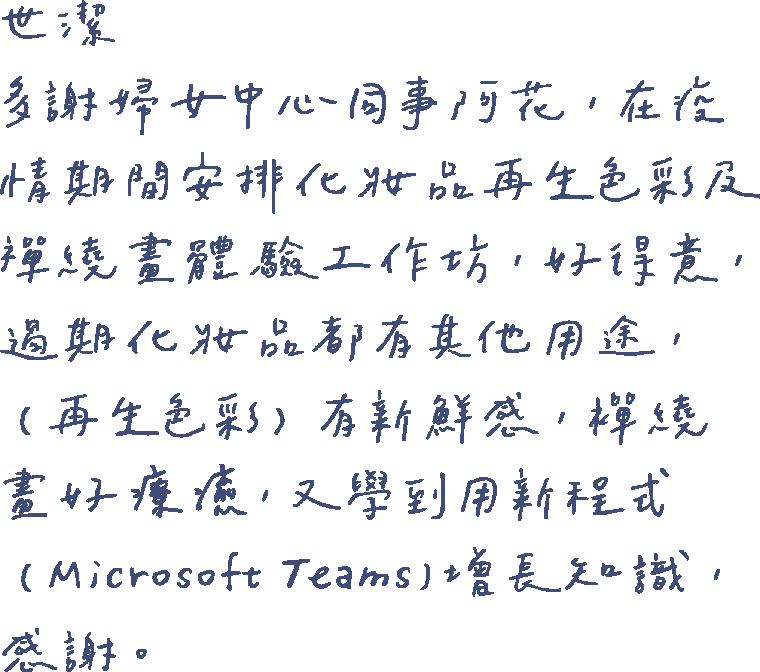 世潔
多謝婦女中心同事阿花，在疫
情期間安排化妝品再生色彩及
禪繞畫體驗工作坊，好得意，
過期化妝品都有其他用途，
（再生色彩）有新鮮感，禪繞
畫好療癒，又學到用新程式
（Microsoft Teams）增長知識，
感謝。